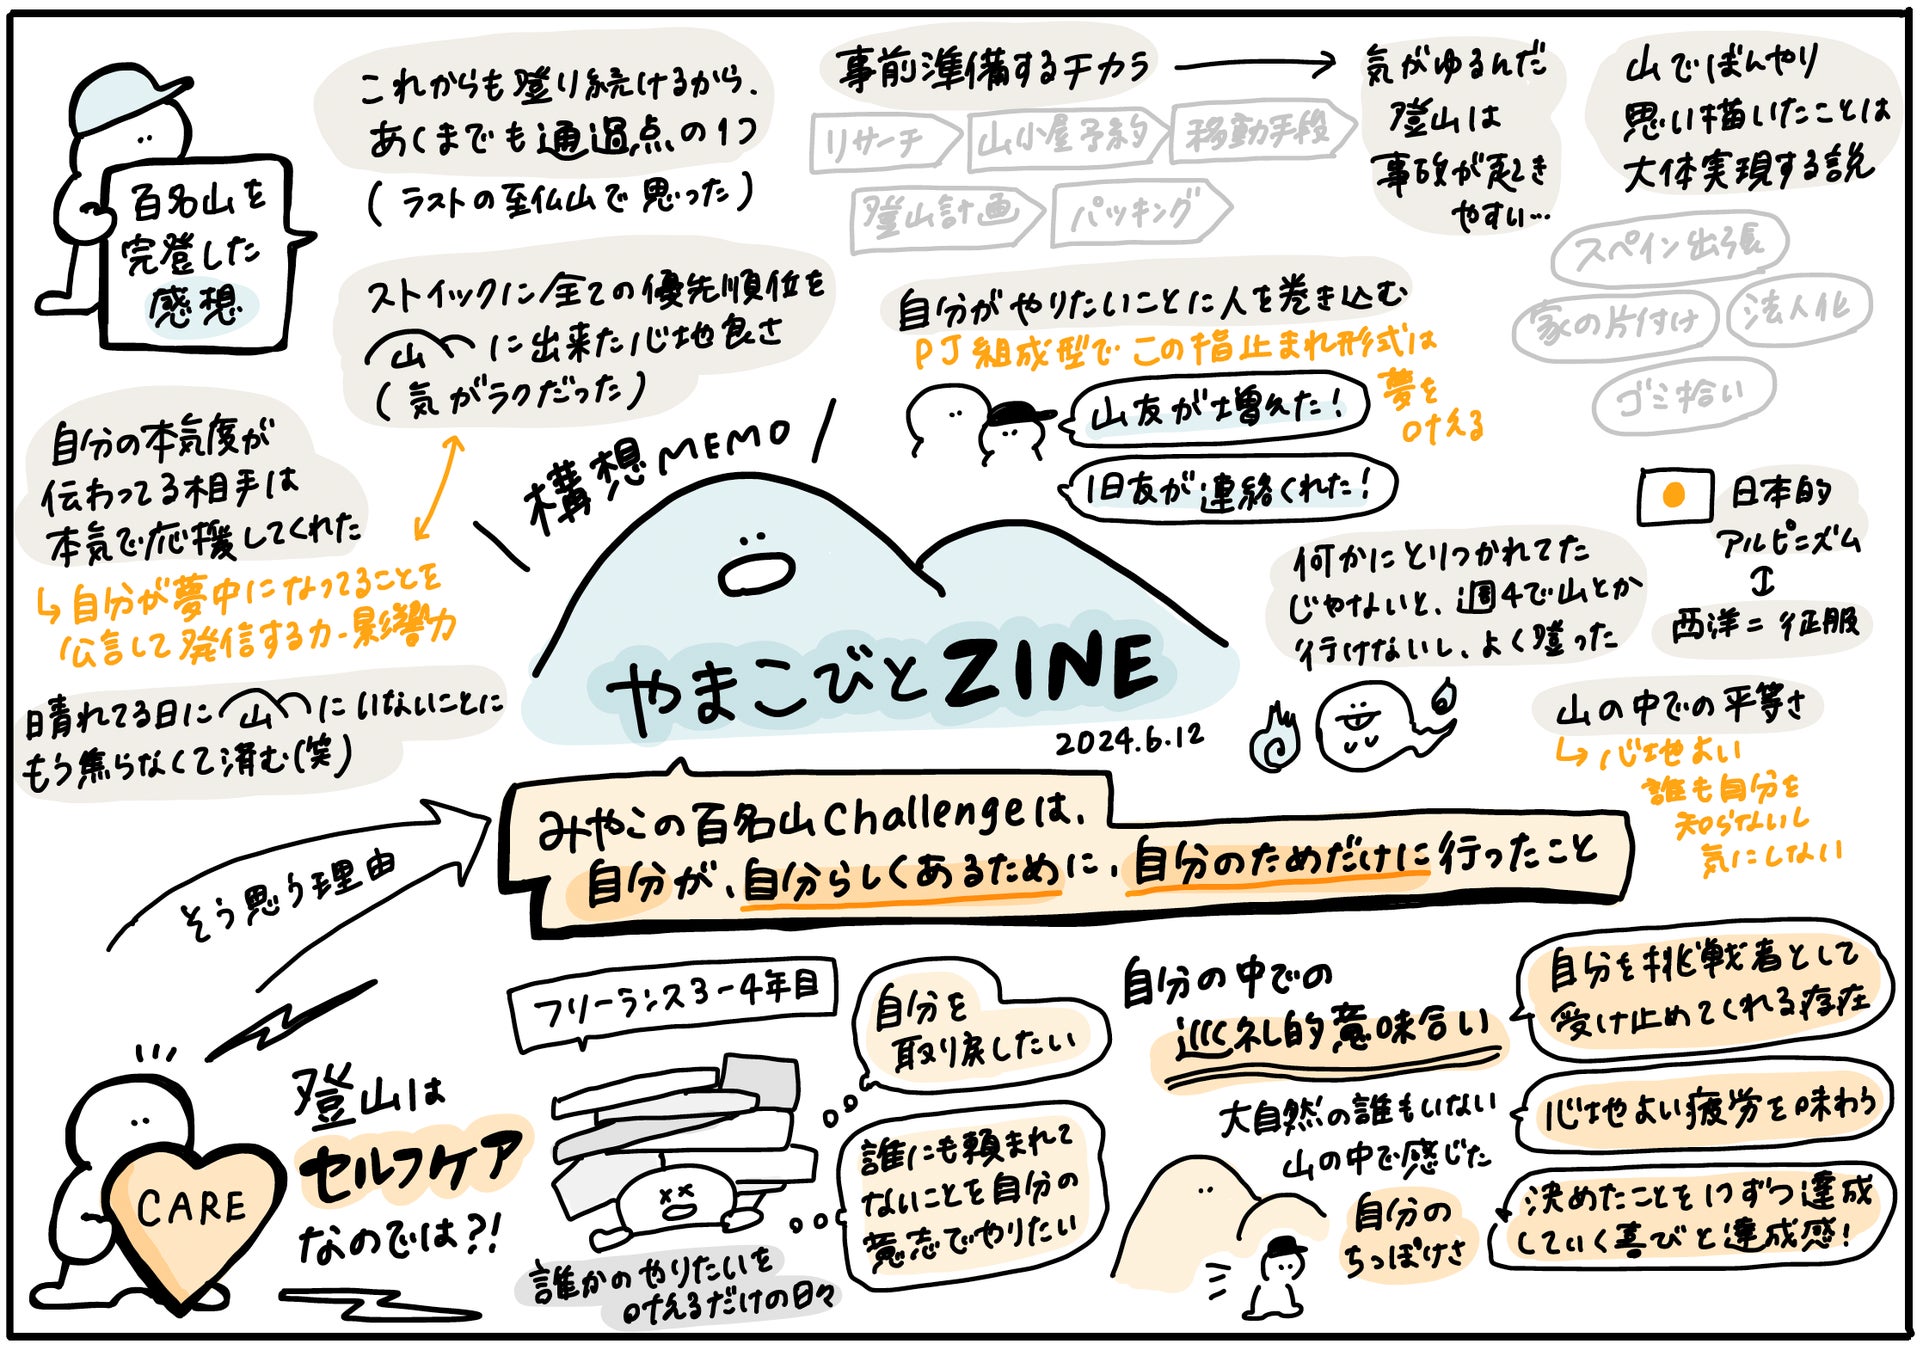 百名山を
完登した
感想
これからも登り続けるから、
あくまでも通過点の1つ
(ラストの至仏山で思った)
ストイックに全ての優先順位を
山に出来た心地良さ
(気がラクだった)
事前準備するチカラ
リサーチ
山小屋予約
移動手段
登山計画
パッキング
気がゆるんだ
登山は
事故が起き
やすい…
山でぼんやり
思い描いたことは
大体実現する説
スペイン出張
家の片付け
法人化
ゴミ拾い
自分がやりたいことに人を巻き込む
PJ組成型でこの指止まれ形式は
夢を
叶える
山友が増えた!
旧友が連絡くれた!
自分の本気度が
伝わってる相手は
本気で応援してくれた
↳自分が夢中になってることを
公言して発信する力-影響力
晴れてる日に山にいないことに
もう焦らなくて済む(笑)
構想MEMO
やまこびとZINE
2024.6.12
何かにとりつかれてた
じゃないと、週4で山とか
行けないし、よく登った
日本的
アルピニズム
↕
西洋=征服
山の中での平等さ
↳心地よい
誰も自分を
知らないし
気にしない
みやこの百名山Challengeは、
自分が、自分らしくあるために、自分のためだけに行ったこと
そう思う理由
登山は
セルフケア
なのでは?!
CARE
フリーランス3-4年目
自分を
取り戻したい
誰にも頼まれて
ないことを自分の
意志でやりたい
誰かのやりたいを
叶えるだけの日々
自分の中での
巡礼的意味合い
大自然の誰もいない
山の中で感じた
自分の
ちっぽけさ
自分を挑戦者として
受け止めてくれる存在
心地よい疲労を味わう
決めたことを1つずつ達成
していく喜びと達成感!